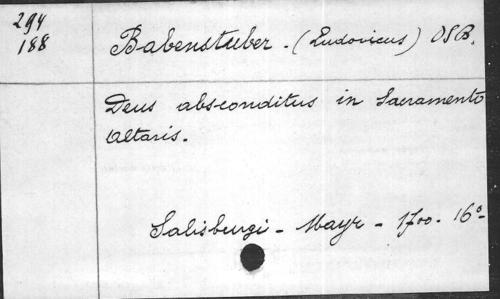 294
188
Babenstuber. (Ludovicus) OSB.
Deus absconditus in Sacramento
Altaris.
Salisburgi - Mayr - 1700. 16°